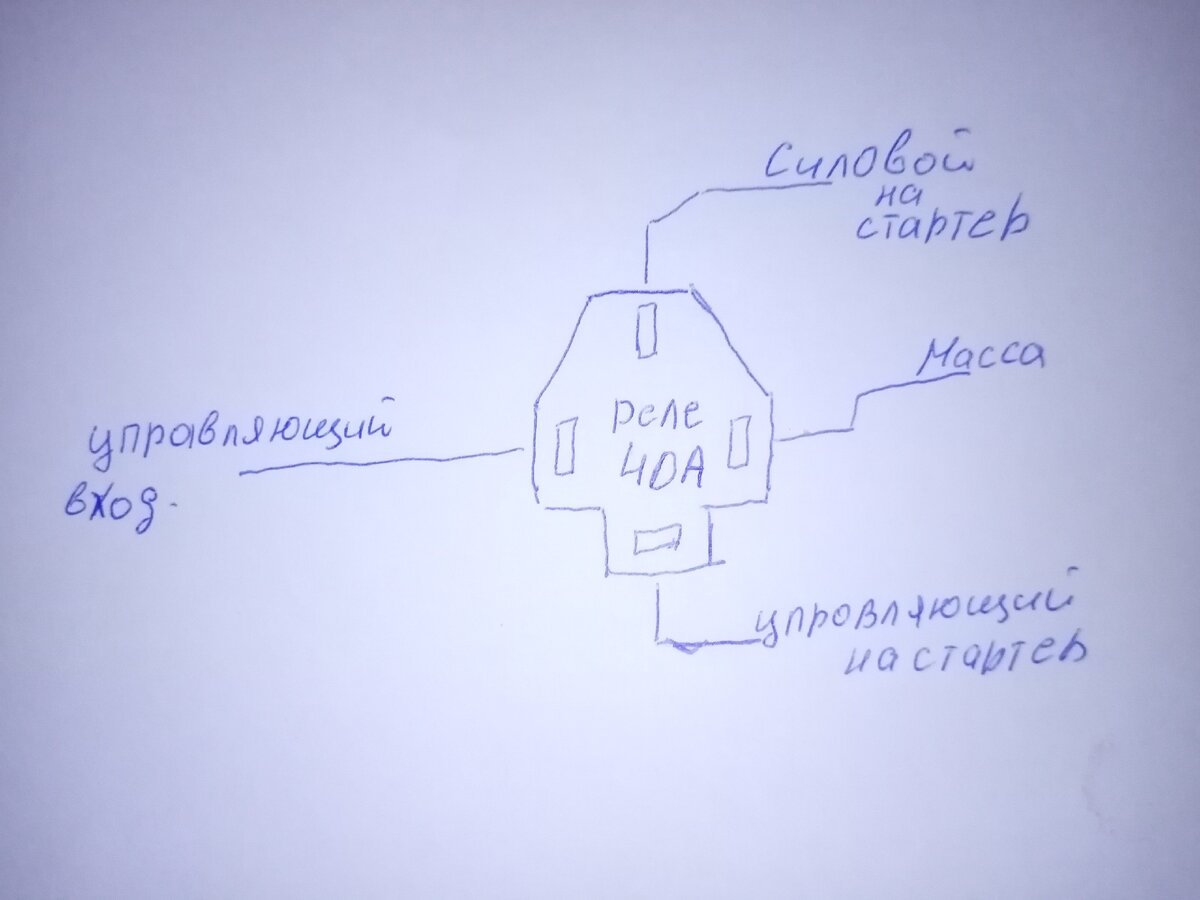 Силовой
на
стартер
Масса
управляющий
вход.
реле
40А
упровляющий
на стартер